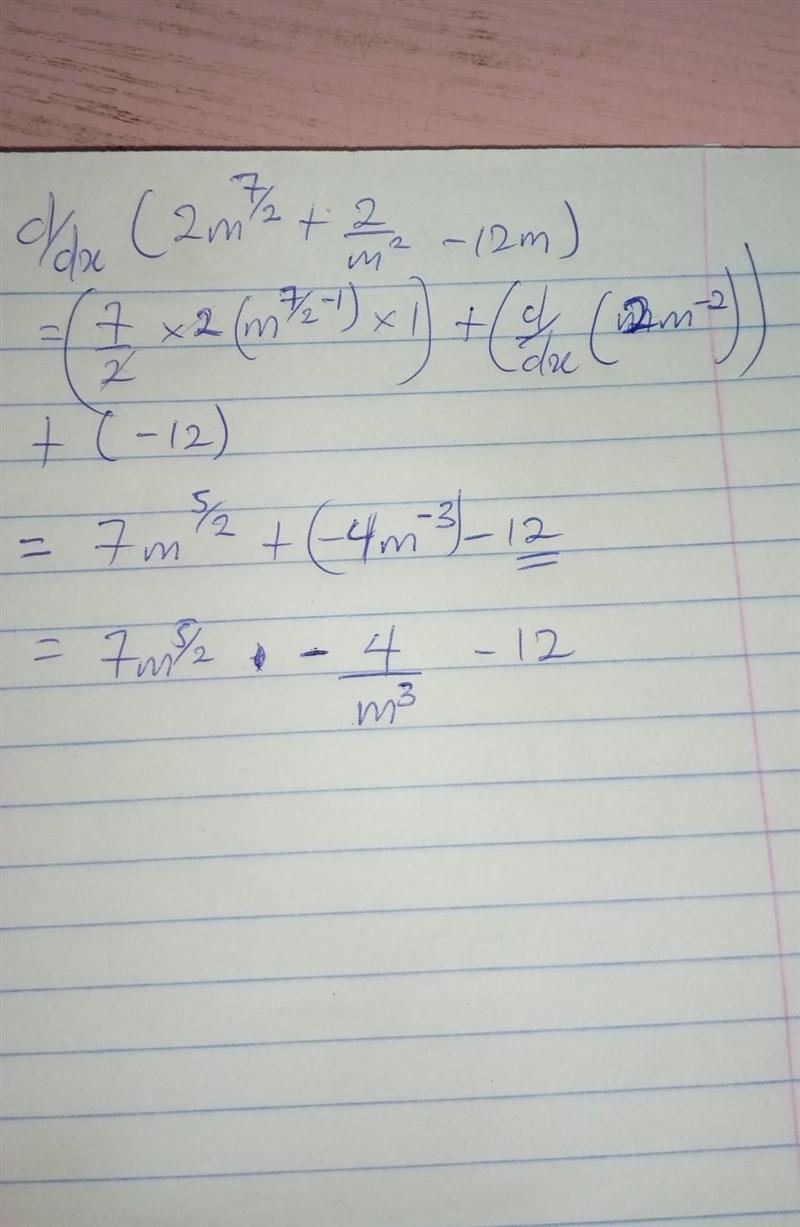 d/dx (2m^7/2 + 2/m^2 - 12m)
= (7/2 × 2 (m^7/2 -1) × 1) + (d/dx (2m^-2))
+ (-12)
= 7m^5/2 + (-4m^-3) - 12
= 7m^5/2 - 4/m^3 - 12